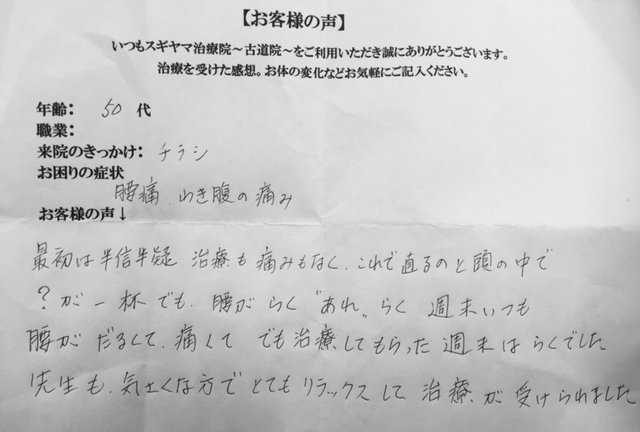 【お客様の声】
いつもスギヤマ治療院～古道院～をご利用いただき誠にありがとうございます。
治療を受けた感想。お体の変化などお気軽にご記入ください。
年齢： 50 代
職業：
来院のきっかけ： チラシ
お困りの症状
腰痛、わき腹の痛み
お客様の声↓
最初は半信半疑 治療も痛みもなく、これで直るのと頭の中で
？が一杯でも、腰がらく〝あれ〟らく 週末いつも
腰がだるくて、痛くて でも治療してもらった週末はらくでした
先生も、気さくな方でとてもリラックスして治療が受けられました